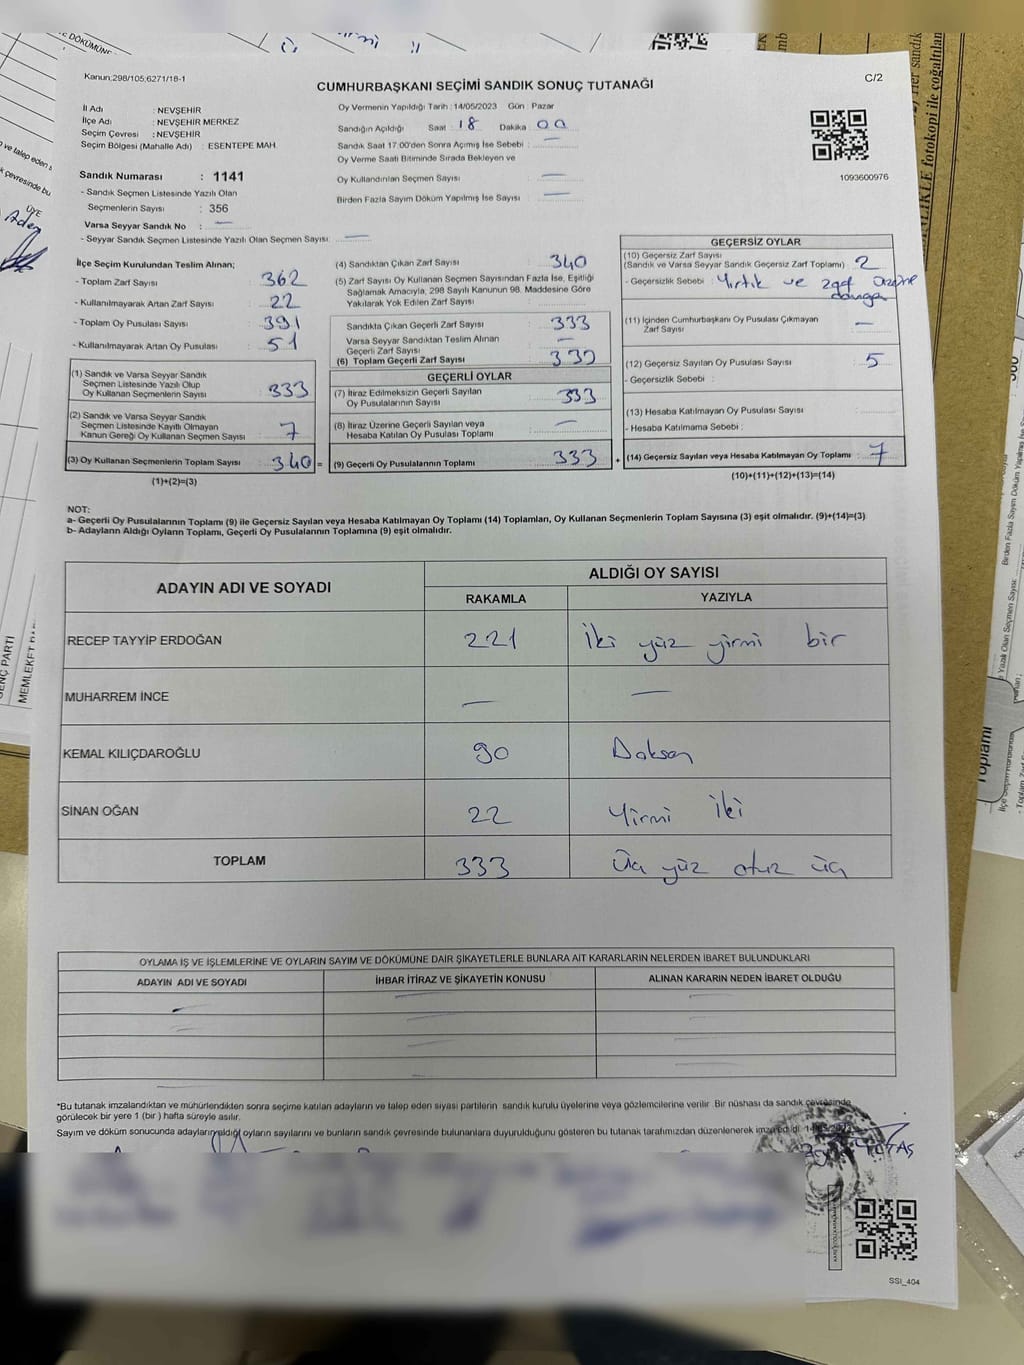 Kanun:298/105;6271/18-1
C/2
CUMHURBAŞKANI SEÇİMİ SANDIK SONUÇ TUTANAĞI
İl Adı : NEVŞEHİR
İlçe Adı : NEVŞEHİR MERKEZ
Seçim Çevresi : NEVŞEHİR
Seçim Bölgesi (Mahalle Adı) : ESENTEPE MAH.
Sandık Numarası : 1141
- Sandık Seçmen Listesinde Yazılı Olan
Seçmenlerin Sayısı : 356
Varsa Seyyar Sandık No : —
- Seyyar Sandık Seçmen Listesinde Yazılı Olan Seçmen Sayısı: —
Oy Vermenin Yapıldığı Tarih : 14/05/2023 Gün : Pazar
Sandığın Açıldığı Saat 18 Dakika 00
Sandık Saat 17:00'den Sonra Açılmış İse Sebebi : —
Oy Verme Saati Bitiminde Sırada Bekleyen ve
Oy Kullandırılan Seçmen Sayısı : —
Birden Fazla Sayım Döküm Yapılmış İse Sayısı : —
1093600976
İlçe Seçim Kurulundan Teslim Alınan;
- Toplam Zarf Sayısı : 362
- Kullanılmayarak Artan Zarf Sayısı : 22
- Toplam Oy Pusulası Sayısı : 391
- Kullanılmayarak Artan Oy Pusulası : 51
(1) Sandık ve Varsa Seyyar Sandık
Seçmen Listesinde Yazılı Olup
Oy Kullanan Seçmenlerin Sayısı : 333
(2) Sandık ve Varsa Seyyar Sandık
Seçmen Listesinde Kayıtlı Olmayan
Kanun Gereği Oy Kullanan Seçmen Sayısı : 7
(3) Oy Kullanan Seçmenlerin Toplam Sayısı : 340 =
(1)+(2)=(3)
(4) Sandıktan Çıkan Zarf Sayısı : 340
(5) Zarf Sayısı Oy Kullanan Seçmen Sayısından Fazla İse, Eşitliği
Sağlamak Amacıyla, 298 Sayılı Kanunun 98. Maddesine Göre
Yakılarak Yok Edilen Zarf Sayısı :
Sandıkta Çıkan Geçerli Zarf Sayısı : 333
Varsa Seyyar Sandıktan Teslim Alınan
Geçerli Zarf Sayısı : —
(6) Toplam Geçerli Zarf Sayısı : 333
GEÇERLİ OYLAR
(7) İtiraz Edilmeksizin Geçerli Sayılan
Oy Pusulalarının Sayısı : 333
(8) İtiraz Üzerine Geçerli Sayılan veya
Hesaba Katılan Oy Pusulası Toplamı : —
(9) Geçerli Oy Pusulalarının Toplamı : 333 +
GEÇERSİZ OYLAR
(10) Geçersiz Zarf Sayısı
(Sandık ve Varsa Seyyar Sandık Geçersiz Zarf Toplamı) : 2
- Geçersizlik Sebebi : Yırtık ve zarf üzerine
damga
(11) İçinden Cumhurbaşkanı Oy Pusulası Çıkmayan
Zarf Sayısı : —
(12) Geçersiz Sayılan Oy Pusulası Sayısı : 5
- Geçersizlik Sebebi :
(13) Hesaba Katılmayan Oy Pusulası Sayısı :
- Hesaba Katılmama Sebebi :
(14) Geçersiz Sayılan veya Hesaba Katılmayan Oy Toplamı : 7
(10)+(11)+(12)+(13)=(14)
NOT:
a- Geçerli Oy Pusulalarının Toplamı (9) ile Geçersiz Sayılan veya Hesaba Katılmayan Oy Toplamı (14) Toplamları, Oy Kullanan Seçmenlerin Toplam Sayısına (3) eşit olmalıdır. (9)+(14)=(3)
b- Adayların Aldığı Oyların Toplamı, Geçerli Oy Pusulalarının Toplamına (9) eşit olmalıdır.
ADAYIN ADI VE SOYADI
ALDIĞI OY SAYISI
RAKAMLA YAZIYLA
RECEP TAYYİP ERDOĞAN 221 İki yüz yirmi bir
MUHARREM İNCE — —
KEMAL KILIÇDAROĞLU 90 Doksan
SİNAN OĞAN 22 Yirmi iki
TOPLAM 333 Üç yüz otuz üç
OYLAMA İŞ VE İŞLEMLERİNE VE OYLARIN SAYIM VE DÖKÜMÜNE DAİR ŞİKAYETLERLE BUNLARA AİT KARARLARIN NELERDEN İBARET BULUNDUKLARI
ADAYIN ADI VE SOYADI İHBAR İTİRAZ VE ŞİKAYETİN KONUSU ALINAN KARARIN NEDEN İBARET OLDUĞU
*Bu tutanak imzalandıktan ve mühürlendikten sonra seçime katılan adayların ve talep eden siyasi partilerin sandık kurulu üyelerine veya gözlemcilerine verilir. Bir nüshası da sandık çevresinde
görülecek bir yere 1 (bir) hafta süreyle asılır.
Sayım ve döküm sonucunda adayların aldığı oyların sayılarını ve bunların sandık çevresinde bulunanlara duyurulduğunu gösteren bu tutanak tarafımızdan düzenlenerek imza edildi.
SSI_404